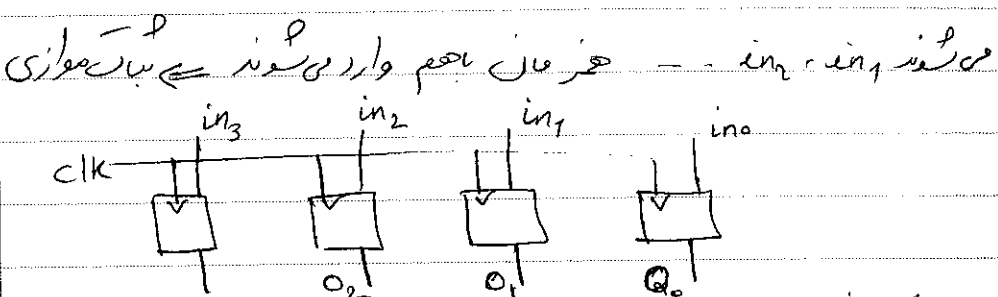 می‌شوند in₁ ، in₂ -- همزمان باهم وارد می‌شوند ⇒ ثبات موازی
in₃ in₂ in₁ in₀
clk
O₂ O₁ Q₀